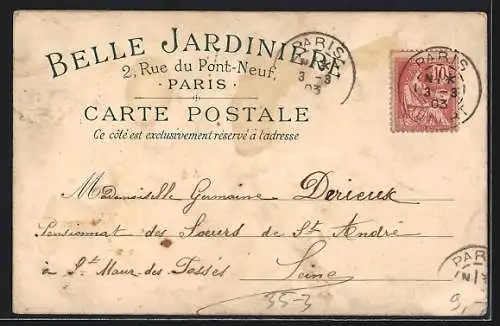 BELLE JARDINIÈRE
2, Rue du Pont-Neuf,
PARIS
CARTE POSTALE
Ce côté est exclusivement réservé à l'adresse
PARIS
3 -3
03
PARIS
3 -3
03
10
Mademoiselle Germaine Derieux
Pensionnat des Soeurs de St André
à St Maur des Fossés Seine
PARI
35-3
9,-